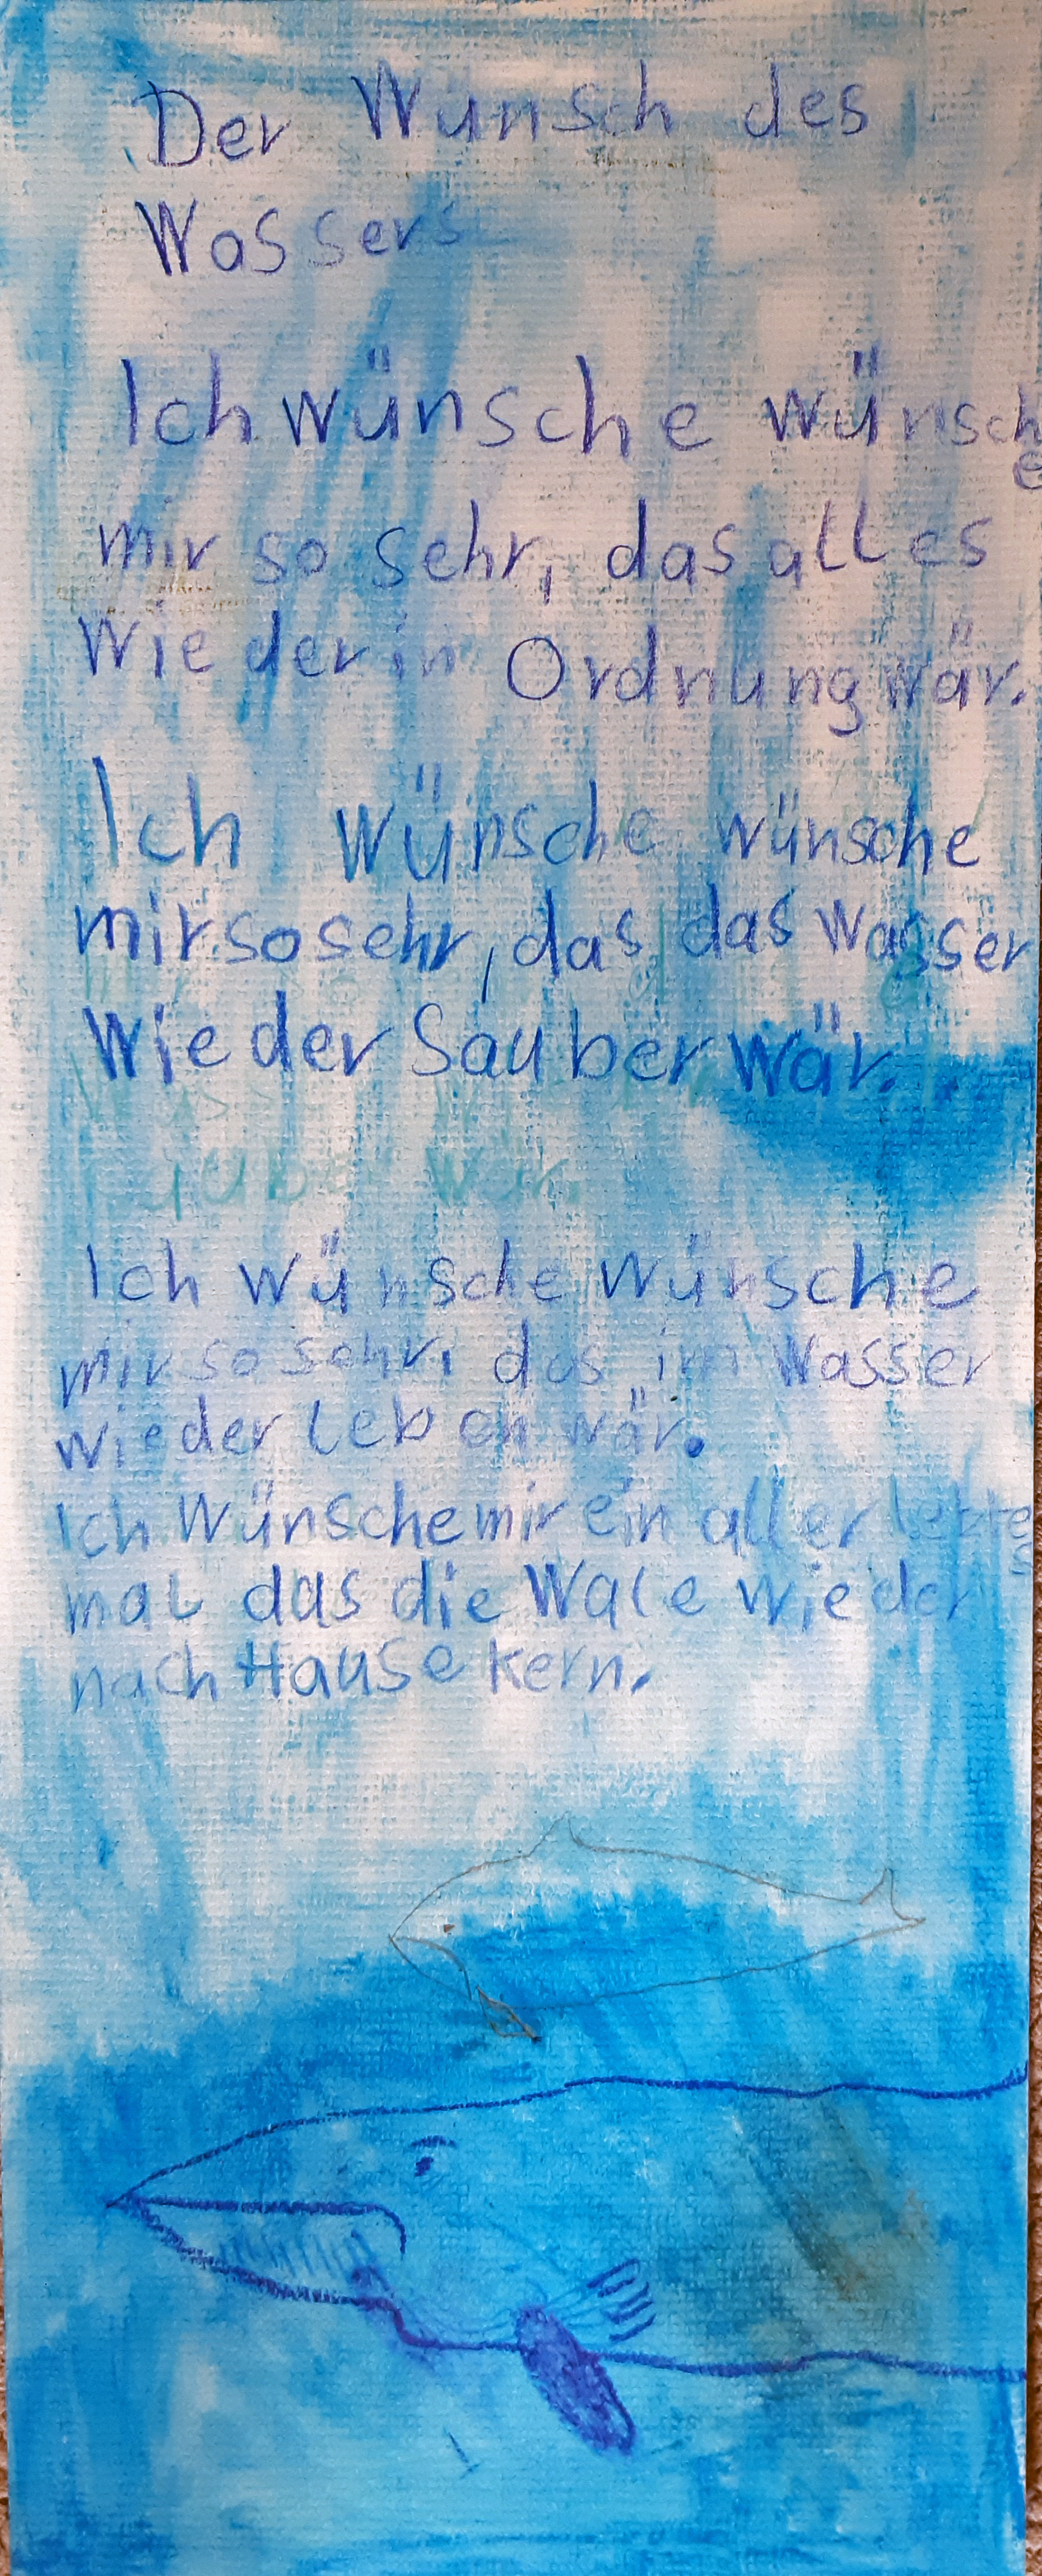 Der Wunsch des
Wassers
Ich wünsche wünsche
mir so sehr, das alles
wieder in Ordnung wär.
Ich wünsche wünsche
mir so sehr, das das Wasser
wieder sauber wär.
Ich wünsche wünsche
mir so sehr, das im Wasser
wieder leben wär.
Ich wünsche mir ein aller letztes
mal das die Wale wieder
nach Hause kern.